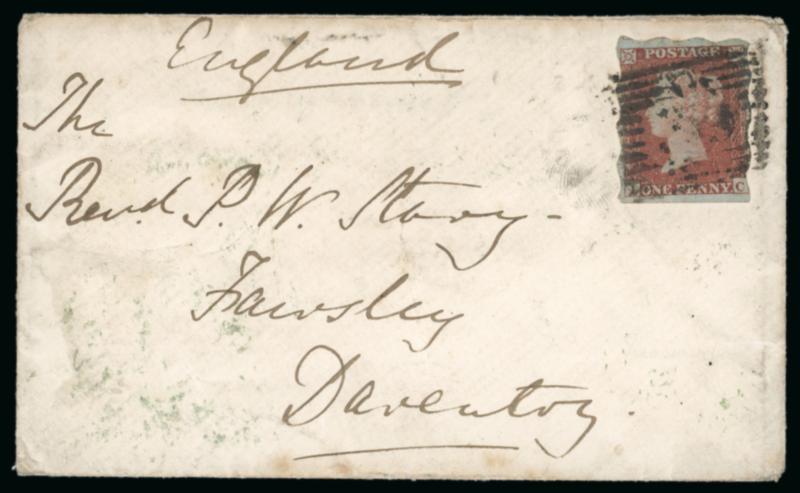 England
POSTAGE
The
Revd. P. W. Story-
ONE PENNY C
Fawsley
Daventry.